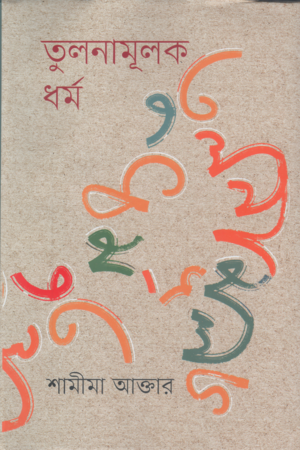 তুলনামূলক
ধর্ম
শামীমা আক্তার